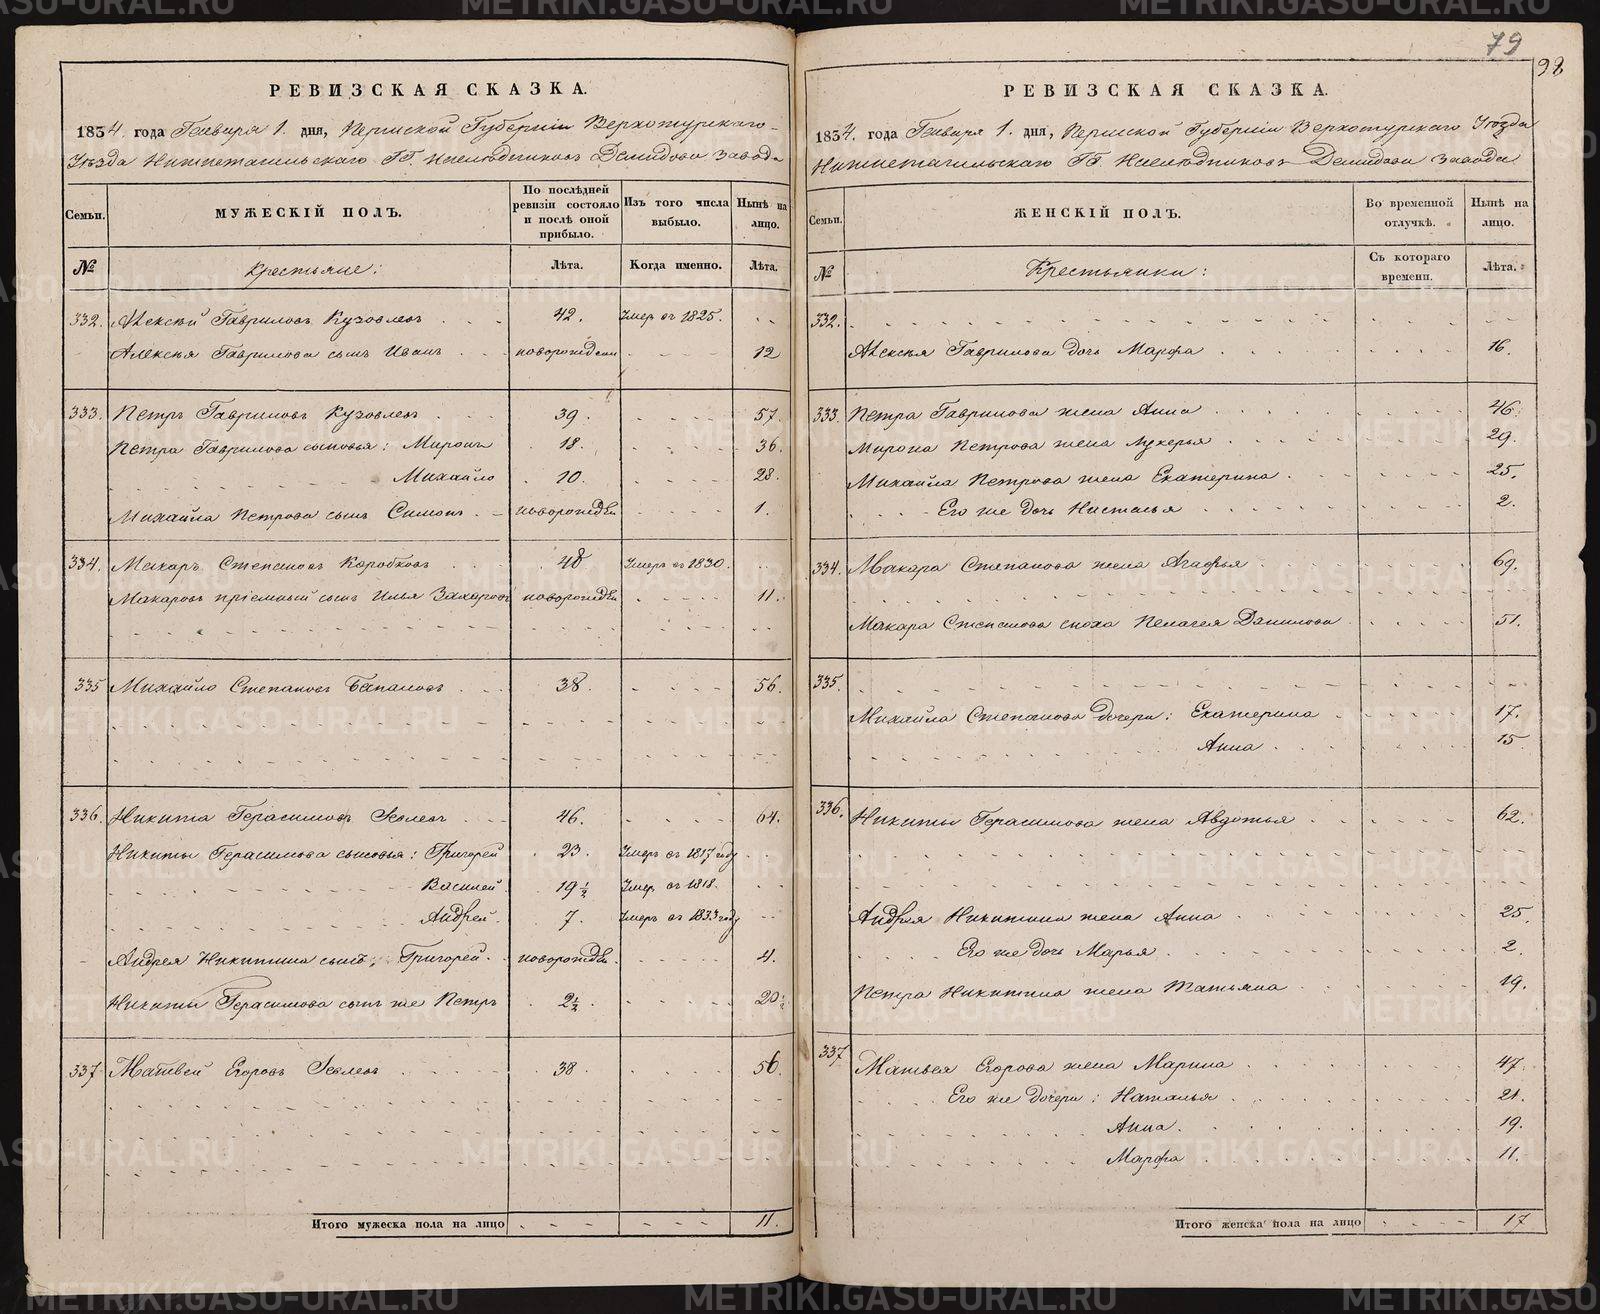 79
98
РЕВИЗСКАЯ СКАЗКА.
1834 года Генваря 1. дня, Пермской Губерніи Верхотурскаго
Уѣзда Нижнетагильскаго ГГ. Наслѣдниковъ Демидова завода
Семьи.
МУЖЕСКІЙ ПОЛЪ.
По послѣдней ревизіи состояло и послѣ оной прибыло.
Изъ того числа выбыло.
Нынѣ на лицо.
№
Крестьяне:
Лѣта.
Когда именно.
Лѣта.
332. Алексѣй Гавриловъ Кузовлевъ 42. Умер въ 1825.
Алексѣя Гаврилова сынъ Иванъ новорожден 12
333. Петръ Гавриловъ Кузовлевъ 39. 57.
Петра Гаврилова сыновья: Миронъ 18. 36.
Михайло 10. 28.
Михайла Петрова сынъ Симонъ новорожден 1.
334. Макаръ Степановъ Коробковъ 48 Умеръ въ 1830.
Макаровъ пріемный сынъ Илья Захаровъ новорожден 11.
335 Михайло Степановъ 38. 56.
336. Никита Герасимовъ 46. 64.
Никиты Герасимова сыновья: Григорей 23. Умеръ въ 1817 году
Василей 19 1/2 Умер. въ 1818.
Андрей 7. Умеръ въ 1833 году
Андрея Никитина сынъ, Григорей новорожден. 4.
Никиты Герасимова сынъ же Петръ 2 1/2. 20 1/2
337 Матвей Егоровъ 38. 56.
Итого мужеска пола на лицо 11.
РЕВИЗСКАЯ СКАЗКА.
1834. года Генваря 1. дня, Пермской Губерніи Верхотурскаго Уѣзда
Нижнетагильскаго ГГ. Наслѣдниковъ Демидова завода
Семьи.
ЖЕНСКІЙ ПОЛЪ.
Во временной отлучкѣ.
Нынѣ на лицо.
№
Крестьянки:
Съ котораго времени.
Лѣта.
332.
Алексѣя Гаврилова дочь Марфа 16.
333 Петра Гаврилова жена Анна 46.
Мирона Петрова жена Лукерья 29.
Михайла Петрова жена Екатерина 25.
Его же дочь Настасья 2.
334. Макара Степанова жена Агафья 69.
Макара Степанова сноха Пелагея Данилова 51.
335.
Михайла Степанова дочери: Екатерина 17.
Анна 15
336. Никиты Герасимова жена Авдотья 62.
Андрея Никитина жена Анна 25.
Его же дочь Марья 2.
Петра Никитина жена Татьяна 19.
337 Матвея Егорова жена Марина 47.
Его же дочери: Наталья 21.
Анна 19.
Марфа 11.
Итого женска пола на лицо 17
METRIKI.GASO-URAL.RU